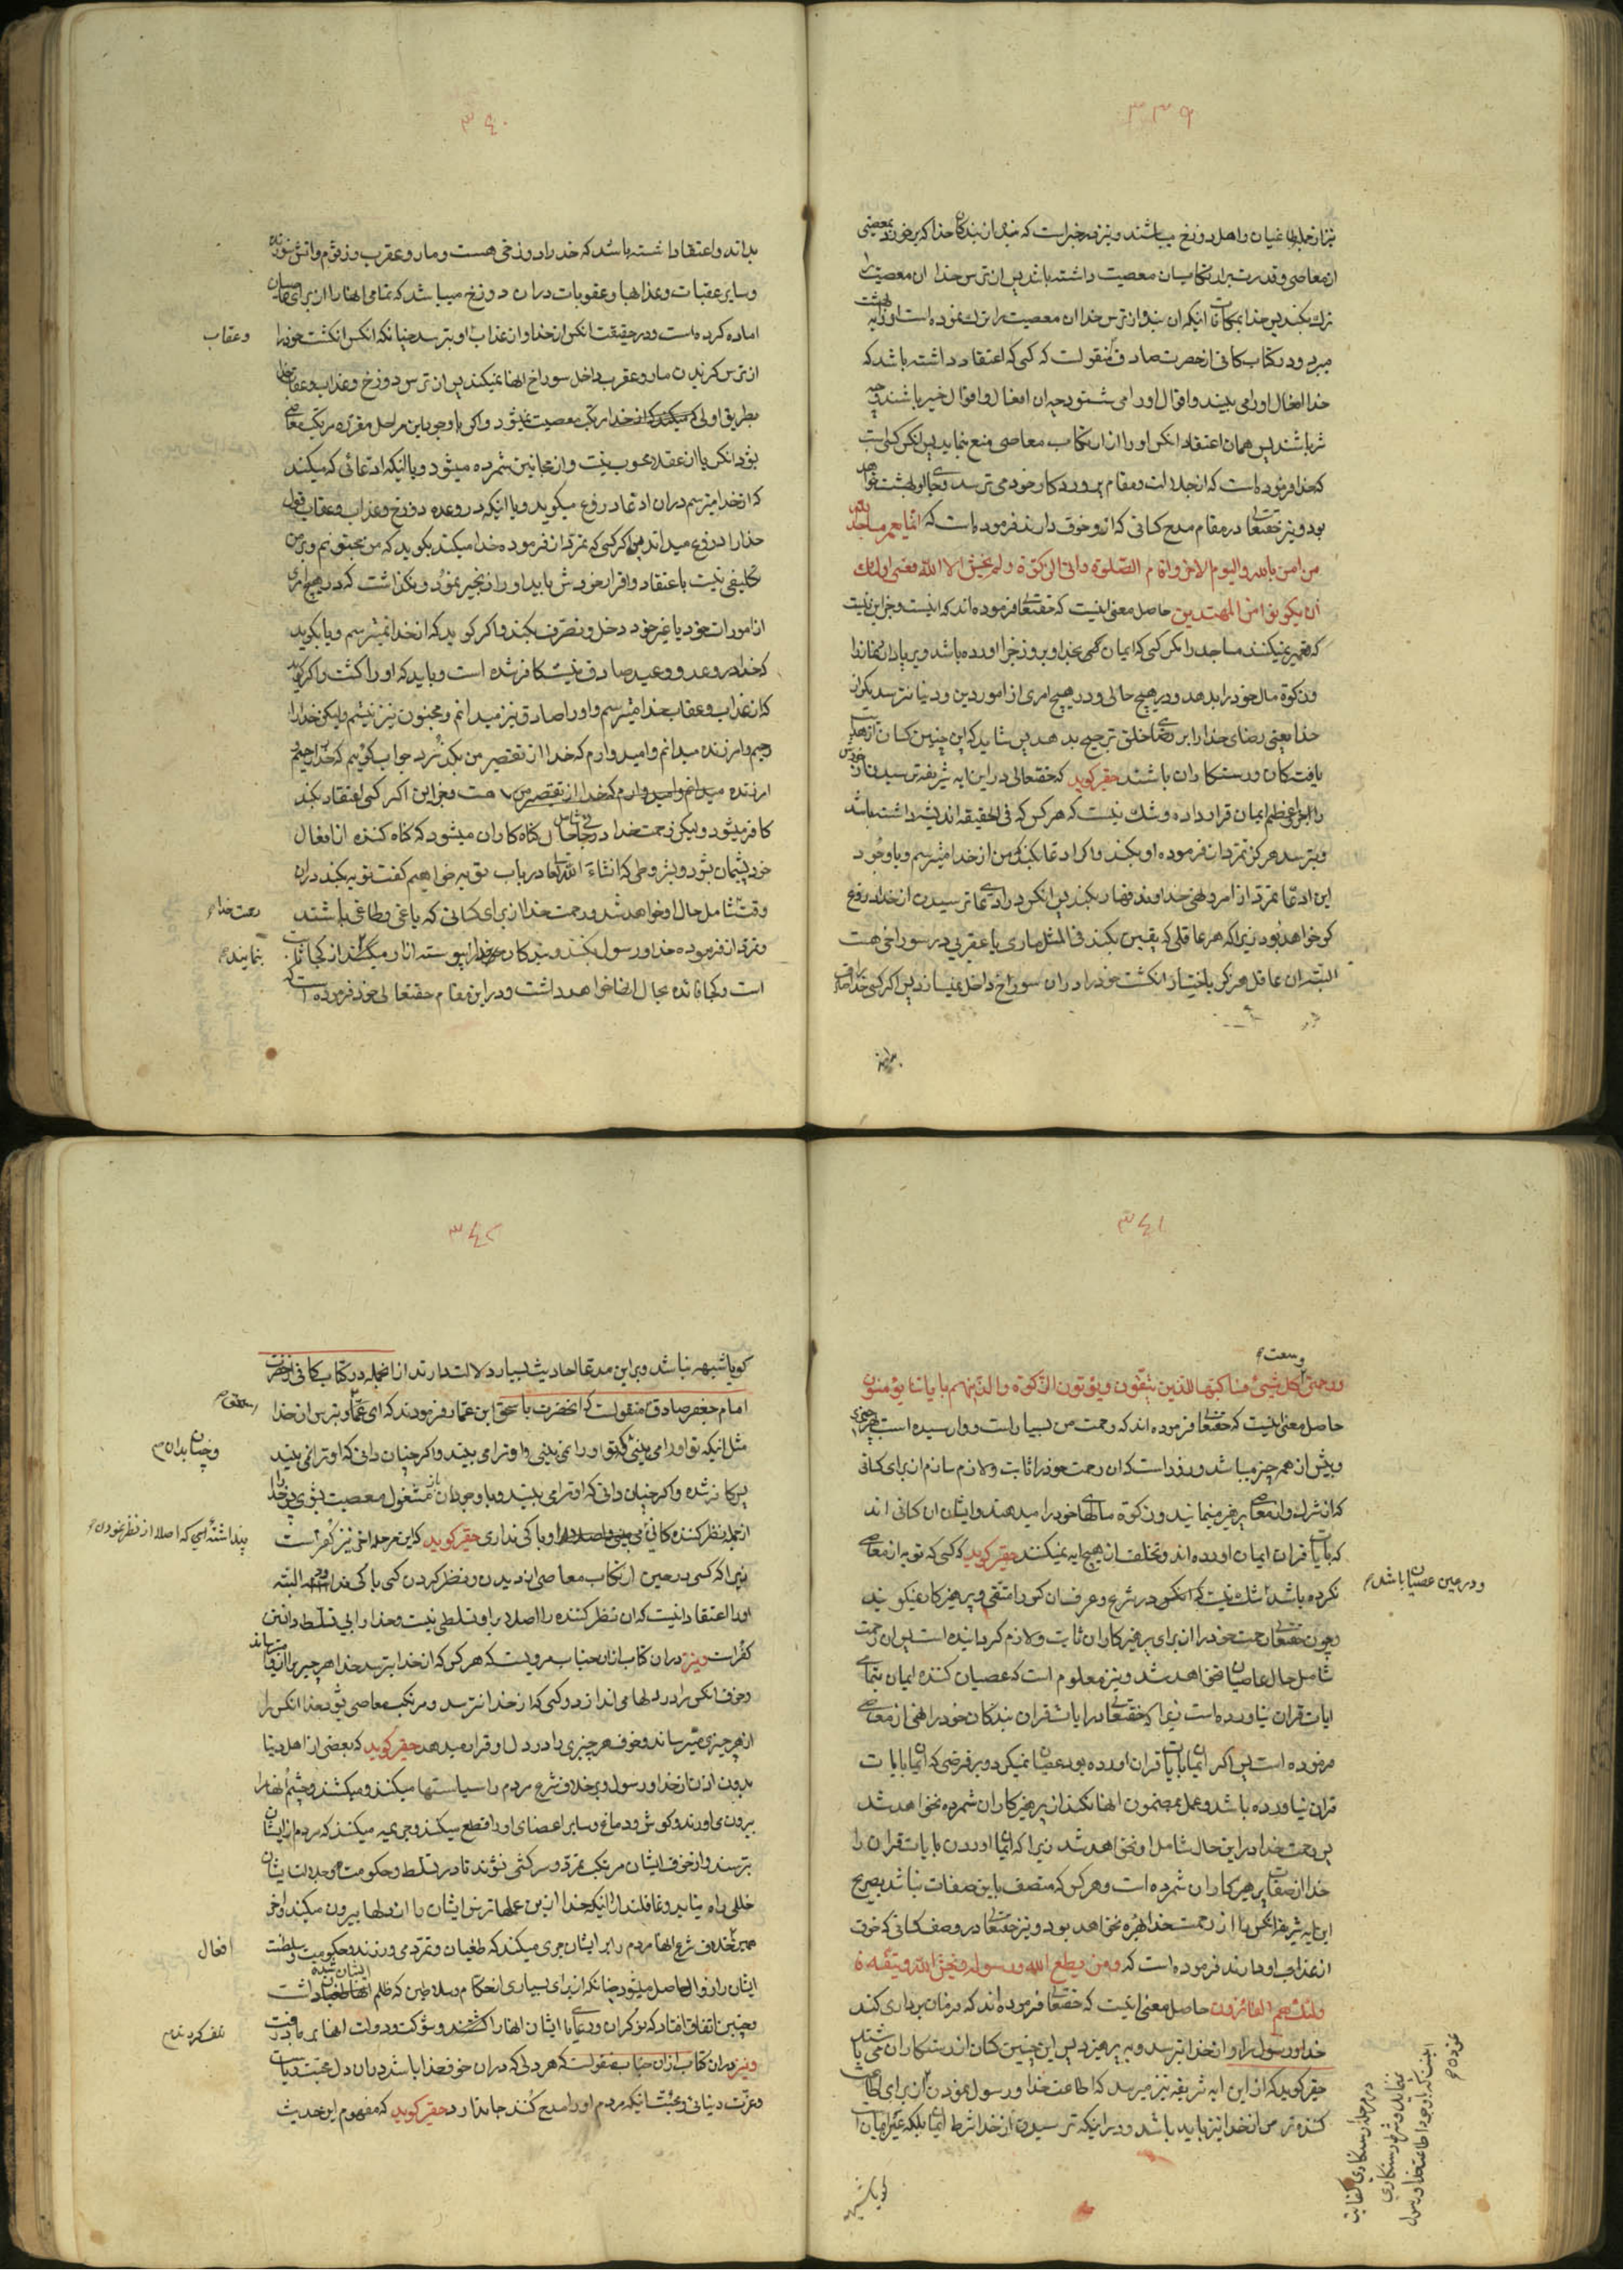 ۳۳۹
نیز از جمله طاغیان و اهل دوزخ میباشند و نیز در خبر است که بنده از بندکان خدا که برخورد ببعضی
از معاصی و قدرت بر ارتکاب ان معصیت داشته باشد پس از ترس خدا ان معصیت را
ترک بکند پس خدا بمکافات اینکه ان بنده از ترس خدا ان معصیت را ترک نموده است او را به بهشت
میبرد و در کتاب کافی از حضرت صادق منقولست که کسی که اعتقاد داشته باشد که
خدا افعال او را می بیند و اقوال او را می شنود چه ان افعال و اقوال خیر باشند و چه
شر باشند پس همان اعتقاد انکس او را از ارتکاب معاصی منع نماید پس انکس کسی است
که خدا فرموده است که از جلالت و مقام پروردکار خود می ترسد و جای او بهشت خواهد
بود و نیز حقتعالی در مقام مدح کسانی که از او خوف دارند فرموده است که انما یعمر مساجد الله
من امن بالله والیوم الاخر واقام الصلوة واتی الزکوة ولم یخش الا الله فعسی اولئک
ان یکونوا من المهتدین حاصل معنی اینست که حقتعالی فرموده اند که اینست و جز این نیست
که تعمیر نمیکنند مساجد را مکر کسی که ایمان بخدا و بروز جزا اورده باشد و برپا دارد نماز را
و زکوة مال خود را بدهد و در هیچ حالی و در هیچ امری از امور دین و دنیا نترسد مکر از
خدا یعنی رضای خدا را بر رضای خلق ترجیح بدهد پس شاید که این چنین کسان از هدایت
یافتکان و رستکاران باشند حقیر کوید که حقتعالی در این ایه شریفه ترسیدن از خودش
را جزء اعظم ایمان قرار داده و شک نیست که هر کس که فی الحقیقه اندیشه داشته باشد
و بترسد هرکز تمرد از فرموده او نکند و اکر ادعا بکند که من از خدا میترسم و با وجود
این ادعا تمرد از امر و نهی خداوند قهار بکند پس انکس در ادعای ترسیدن از خدا دروغ
کو خواهد بود زیرا که هر عاقلی که یقین بکند فی المثل ماری یا عقربی در سوراخی هست
البته ان عاقل هرکز باختیار انکشت خود را در ان سوراخ داخل نمیسازد پس اکر کسی خدا را صادق
بداند
۳۴۰
بداند و اعتقاد داشته باشد که خدا را دوزخی هست و مار و عقرب و زقوم و اتش سوزنده
و سایر عقبات و عذابها و عقوبات در ان دوزخ میباشد که تمامی انها را از برای عاصیان
اماده کرده است و در حقیقت انکس از خدا و از عذاب او بترسد چنانکه انکس انکشت خود را
وعقاب
از ترس کزیدن مار و عقرب داخل سوراخ انها نمیکند پس از ترس دوزخ و عذاب و عقاب خدا
بطریق اولی مرتکب معصیت نمیشود و اکر با وجود این مراحل مقرره مرتکب معاصی
بشود انکس یا از عقلا محسوب نیست و از مجانین شمرده میشود و یا اینکه ادعائی که میکند
که از خدا میترسم در ان ادعا دروغ میکوید و یا اینکه در وعده دوزخ و عذاب و عقاب قول
خدا را دروغ میداند پس اکر کسی که تمرد از فرموده خدا میکند بکوید که من مجنونم و بر من
تکلیفی نیست باعتقاد و اقرار خودش باید او را زنجیر نمود و نکذاشت که در هیچ امری
از امورات خود یا غیر خود دخل و تصرف بکند و اکر کوید که از خدا نمیترسم و یا بکوید
که خدا در وعد و وعید صادق نیست کافر شده است و باید که او را کشت و اکر بکوید
که از عذاب و عقاب خدا میترسم و او را صادق نیز میدانم و مجنون نیز نیستم ولیکن خدا را
رحیم و امرزنده میدانم و امیدوارم که خدا از تقصیر من بکذرد جواب کوئیم که خدا رحیم و
امرزنده هست و جز این اکر کسی اعتقاد بکند
کافر میشود ولیکن رحمت خدا در وقتی شامل حال کناه کاران میشود که کناه کننده از افعال
خود پشیمان بشود و بشروطی که انشاء الله تعالی در باب توبه خواهیم کفت توبه بکند در ان
وقت شامل حال او خواهد شد و رحمت خدا از برای کسانی که یاغی و طاغی باشند
رحمت خدا
و تمرد از فرموده خدا و رسول بکنند
نمایند
است و کجا فائده بحال انها خواهد داشت و در این مقام حقتعالی خود فرموده است که
۳۴۱
وسعت
ورحمتی کل شیئ فساکتبها للذین یتقون ویؤتون الزکوة والذین هم بایاتنا یؤمنون
حاصل معنی اینست که حقتعالی فرموده اند که رحمت من بسیار است و وارسیده است بهر چیزی
و بیش از همه چیز میباشد و زود است که ان رحمت خود را ثابت و لازم سازم از برای کسانی
که از شرک و از معاصی پرهیز مینمایند و زکوة مالهای خود را میدهند و ایشان ان کسانی اند
که بایات قران ایمان اورده اند و تخلف از هیچ ایه نمیکنند حقیر کوید که کسی که توبه از معاصی
نکرده باشد شک نیست که انکس در شرع و عرف ان کس را متقی و پرهیزکار نمیکویند
و در عین عصیان باشد
و چون حقتعالی رحمت خود را از برای پرهیزکاران ثابت و لازم کردانیده است پس ان رحمت
شامل حال عاصیان نخواهد شد و نیز معلوم است که عصیان کننده ایمان بتمامی
ایات قران نیاورده است زیرا که حقتعالی در ایات قران بندکان خود را نهی از معاصی
فرموده است پس اکر ایمان بایات قران اورده بود عصیان نمیکرد و بر فرضی که ایمان بایات
قران نیاورده باشد و عمل بمضمون انها نکند از پرهیزکاران شمرده نخواهد شد
پس رحمت خدا در این حال شامل او نخواهد شد زیرا که ایمان اوردن بایات قران را
خدا از صفات پرهیزکاران شمرده است و هر کس که متصف باین صفات نباشد بصریح
این ایه شریفه انکس را از رحمت خدا بهره نخواهد بود و نیز حقتعالی در وصف کسانی که خوف
از عذاب او دارند فرموده است که ومن یطع الله ورسوله ویخش الله ویتقه فا
ولئک هم الفائزون حاصل معنی اینست که حقتعالی فرموده اند که فرمان برداری کند
خدا و رسول را و از خدا بترسد و بپرهیزد پس این چنین کسان از رستکاران می باشند
حقیر کوید که از این ایه شریفه نیز میرسد که اطاعت خدا و رسول نمودن از برای اطاعت
کننده ترس از خدا نیز باید باشد و در اینکه ترسیدن از خدا شرط ایمان بلکه عین ایمان است
کویا شبهه
۳۴۲
کویا شبهه نباشد و بر این مدعا احادیث بسیار دلالت دارند از انجمله در کتاب کافی از حضرت
امام جعفر صادق منقولست که انحضرت باسحق ابن عمار فرمودند که ای عمار بترس از خدا
اسحق
مثل اینکه تو او را می بینی و اکر تو او را نمی بینی و او ترا می بیند و اکر چنان دانی که او ترا نمی بیند
و چنان بدان
پس کافر شده و اکر چنان دانی که او ترا می بیند و با وجود ان باز مشغول معصیت بشوی پس خدا را
از جمله نظر کننده کانی او باکی نداری حقیر کوید که این مرحله اخر نیز کفر است
پنداشته ای که اصلا از نظر نمودن
زیرا که کسی در عین ارتکاب معاصی از دیدن و نظر کردن کسی باکی ندارد البته
او را اعتقاد اینست که ان نظر کننده را اصلا بر او تسلطی نیست و خدا را بی تسلط دانستن
کفر است و نیز در ان کتاب از ان جناب مرویست که هر کس که از خدا بترسد خدا هر چیز را از او بترساند
و خوف انکس را در دلها می اندازد و کسی که از خدا نترسد و مرتکب معاصی بشود خدا انکس را
از هر چیزی میترساند و خوف هر چیزی را در دل او قرار میدهد حقیر کوید که بعضی از اهل دنیا
بدون اذن از خدا و رسول و بر خلاف شرع مردم را سیاستها میکنند و میکشند و چشم انها را
بیرون می اورند و کوش و دماغ و سایر اعضای او را قطع میکنند و جریمه میکنند که مردم از ایشان
بترسند و از خوف ایشان مرتکب تمرد و سرکشی نشوند تا در تسلط و حکومت و جلالت ایشان
خللی راه نیابد و غافلند از اینکه خدا از این عملها ترس ایشان را از دلها بیرون میکند و اخر
همین خلاف شرع انها مردم را بر ایشان جری میکند که طغیان و تمرد می ورزند و حکومت و سلطنت
افعال
ایشان را زوال حاصل میشود چنانکه از برای بسیاری از حکام و سلاطین که ظلم
و چنین اتفاق افتاد که نوکران و رعایا ایشان انها را کشتند و شوکت و دولت انها بر باد رفت
تلف کردند
و نیز در ان کتاب از ان جناب منقولست که هر دلی که در ان خوف خدا باشد در ان دل محبت ریاست
و عزت دنیائی و محبت اینکه مردم او را مدح کنند جا ندارد حقیر کوید که مفهوم این حدیث